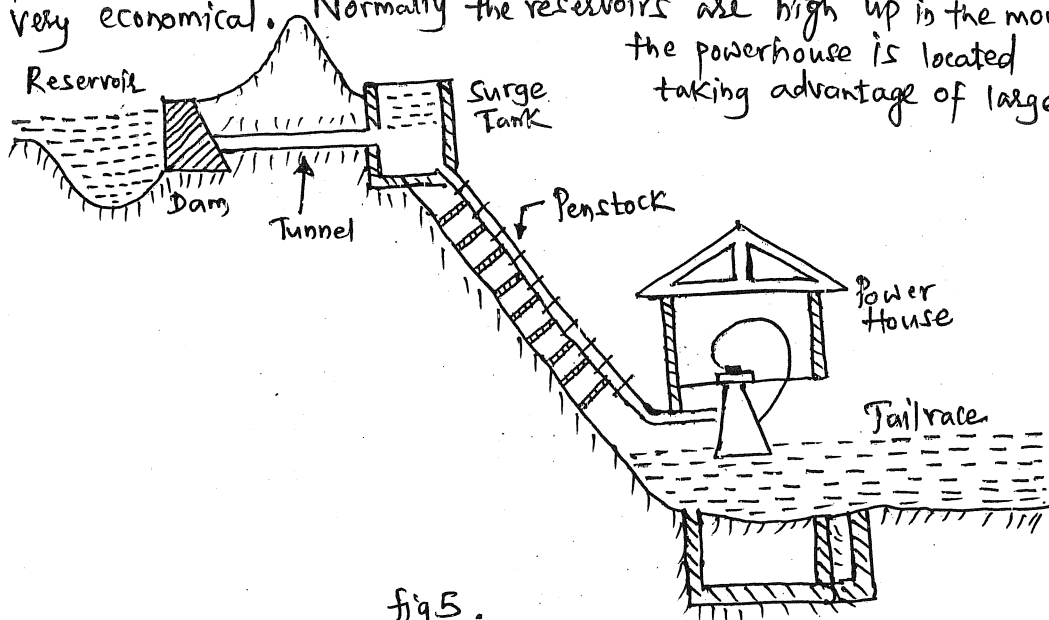 very economical. Normally the reservoirs are high up in the
the powerhouse is located
taking advantage of large
Reservoir
Surge
Tank
Dam
Tunnel
Penstock
Power
House
Tailrace
fig 5.